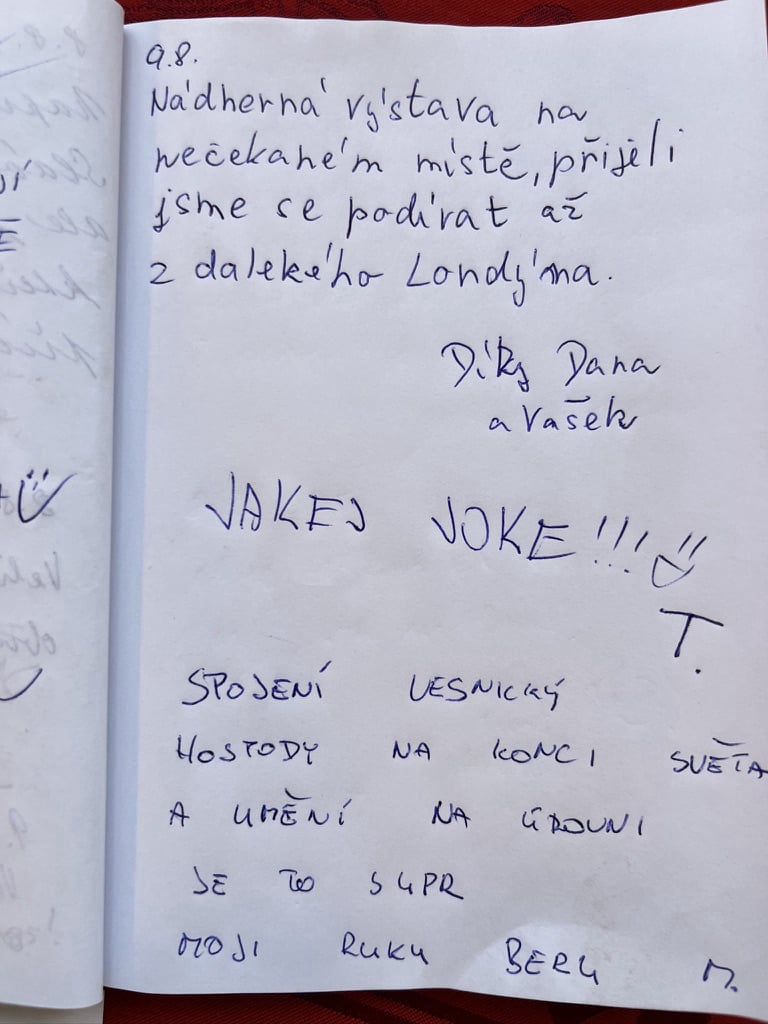 9.8.
Nádherná výstava na
nečekaném místě, přijeli
jsme se podívat až
z dalekého Londýna.
Díky Dana
a Vašek
JAKEJ JOKE!!!
T.
SPOJENÍ VESNICKÝ
HOSPODY NA KONCI SVĚTA
A UMĚNÍ NA ÚROVNI
JE TO SUPR
MOJI RUKU BERU M.